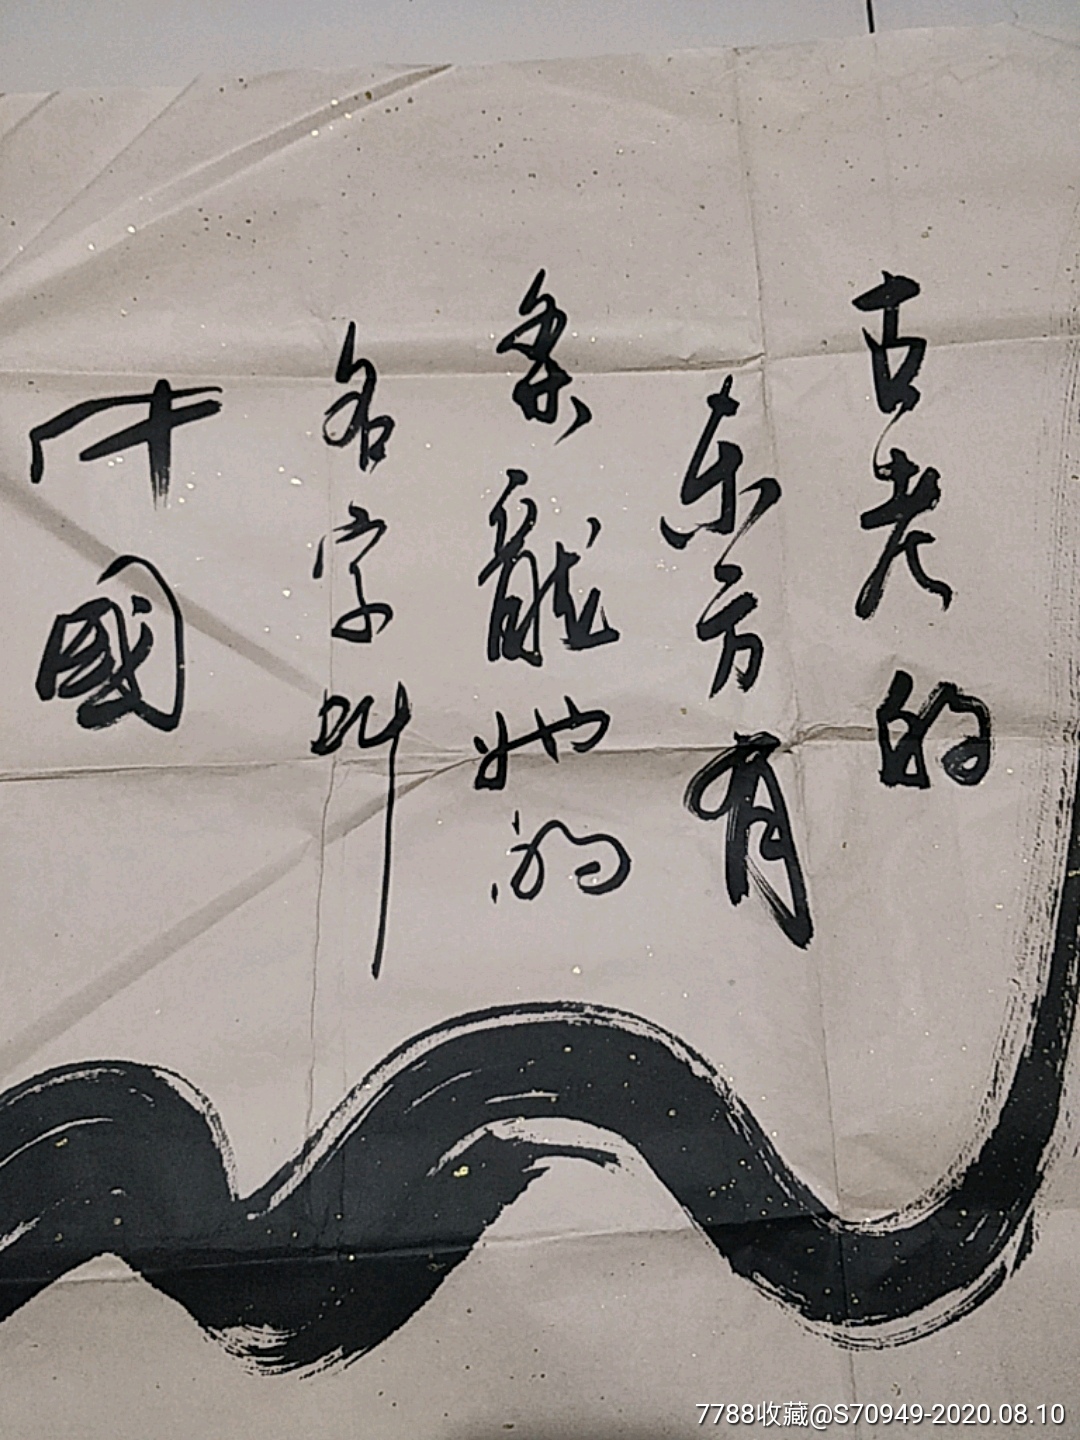 古老的
东方有
条龍她的
名字叫
中國
7788收藏@S70949-2020.08.10